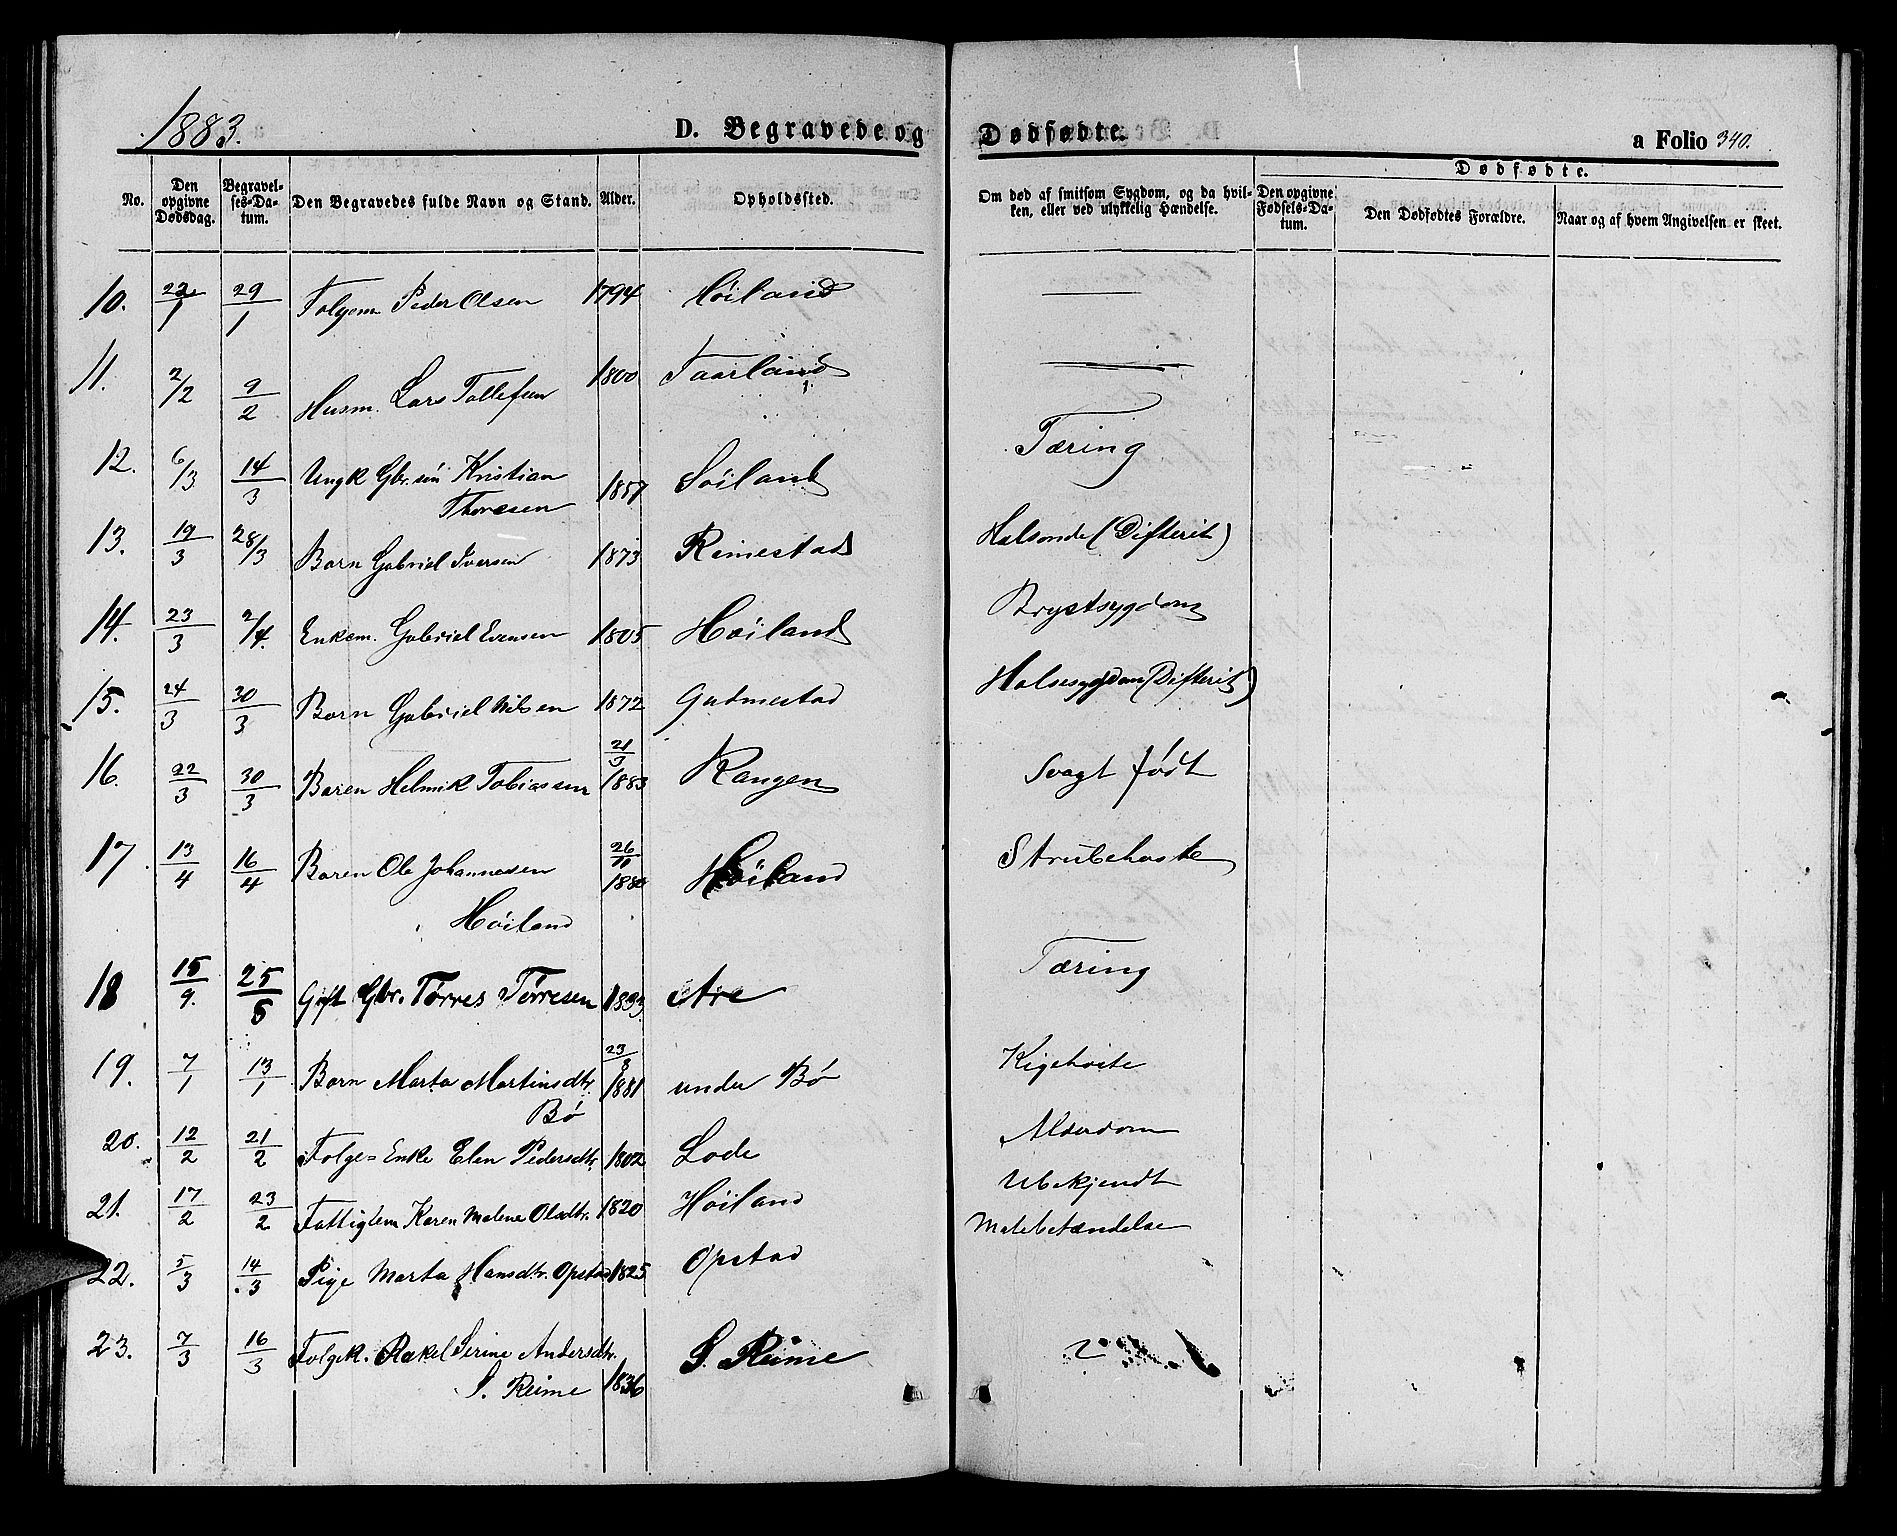 1883. D. Begravede og Dødfødte. a Folio 340.
Dødfødte.
No. Den opgivne Dødsdag. Begravelses-Datum. Den Begravedes fulde Navn og Stand. Alder. Opholdssted. Om død af smitsom Sygdom, og da hvilken, eller ved ulykkelig Hændelse. Den opgivne Fødsels-Datum. Den Dødfødtes Forældre. Naar og af hvem Angivelsen er skeet.
10. 22/1 29/1 Folgem. Peder Olsen 1794 Høiland
11. 2/2 9/2 Husm. Lars Tollefsen 1800 Taarland
12. 6/3 14/3 Ungk Gbr. søn Kristian Thoresen 1857 Søiland Tæring
13. 19/3 28/3 Barn Gabriel Iversen 1873 Reimestad Halsonde (Difterit)
14. 23/3 2/4. Enkem. Gabriel Evensen 1805 Høiland Brystsygdom
15. 24/3 30/3 Barn Gabriel Nilsen 1872 Gudmestad Halsesygdom (Difterit)
16. 22/3 30/3 Baren Helmik Tobiassen 21/3 1883 Kangen Svagt født
17. 13/4 16/4 Baren Ole Johannesen Høiland 26/10 1880 Høiland Strubehoste
18 15/9. 25/5 Gift Gbr. Tørres Tørresen Are Tæring
19. 7/1 13/1 Barn Marta Martinsdtr. Bø 23/8 1881 under Bø Kigehoste
20. 12/2 21/2 Folge= Enke Elen Pedersdtr. 1802 Lode Alderdom
21. 17/2 23/2 Fattiglem Karen Malene Olsdtr. 1820 Høiland Ubekjendt
22. 5/3 14/3 Pige Marta Hansdtr. Opstad 1825 Opstad Malebetændelse
23. 7/3 16/3 Folgek. Rakel Serine Andersdtr. S. Reime 1836 S. Reime